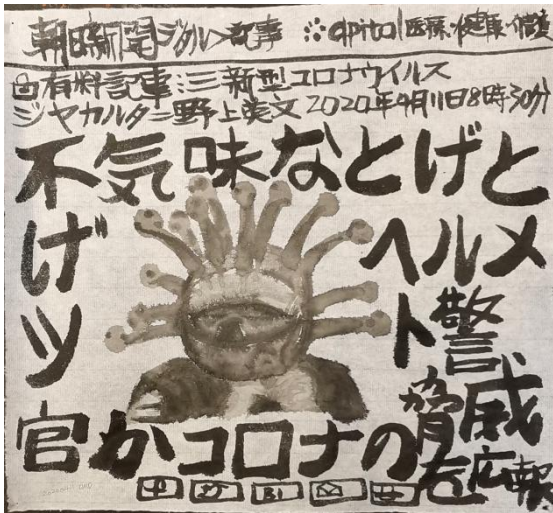 朝日新聞ジタル>記事 apitol 医療・健康・介護
有料記事 新型コロナウイルス
ジャカルタ=野上英文 2020年4月11日8時30分
不気味なとげと
げヘルメ
ット警
官かコロナの脅威
を広報